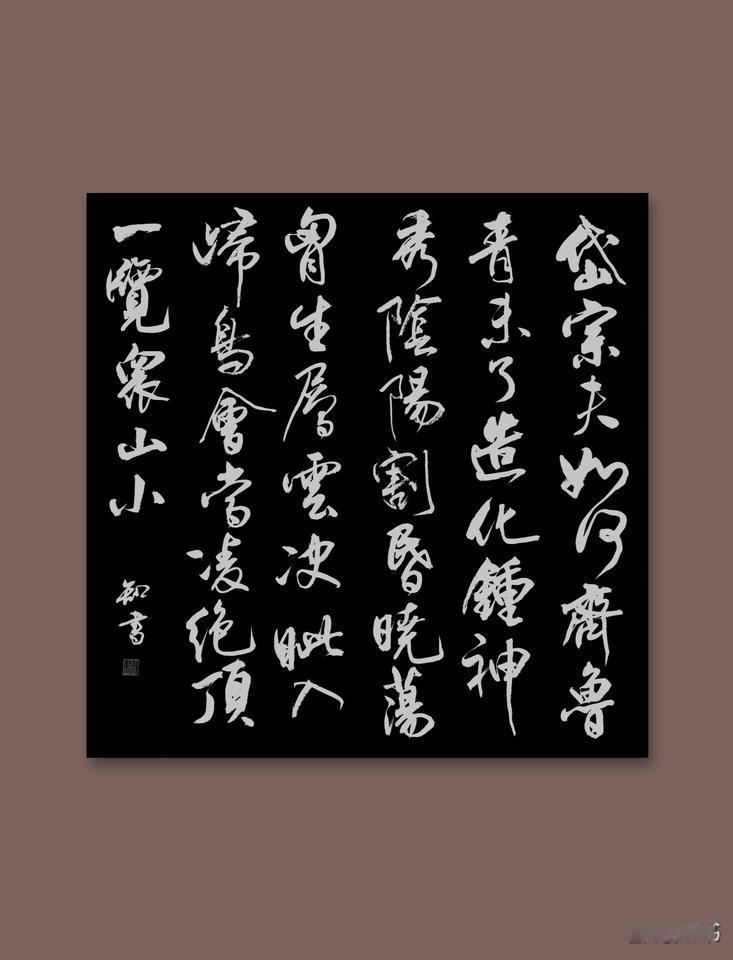 岱宗夫如何齊魯
青未了造化鍾神
秀陰陽割昏曉蕩
胷生層雲決眦入
歸鳥會當凌絕頂
一覽衆山小
知書